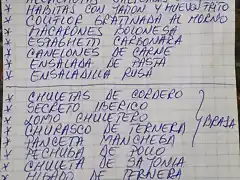 HABITAS CON JAMON Y HUEVO FRITO
COLIFLOR GRATINADA AL HORNO
MACARONES BOLONESA
ESPAGHETI CARBONARA
CANELONES DE CARNE
ENSALADA DE PASTA
ENSALADILLA RUSA
CHULETAS DE CORDERO
SECRETO IBERICO
LOMO CHULETERO
CHURASCO DE TERNERA
PANCETA MANCHEGA
PECHUGA DE POLLO
CHULETA DE SAJONIA
HIGADO DE TERNERA
BRASA